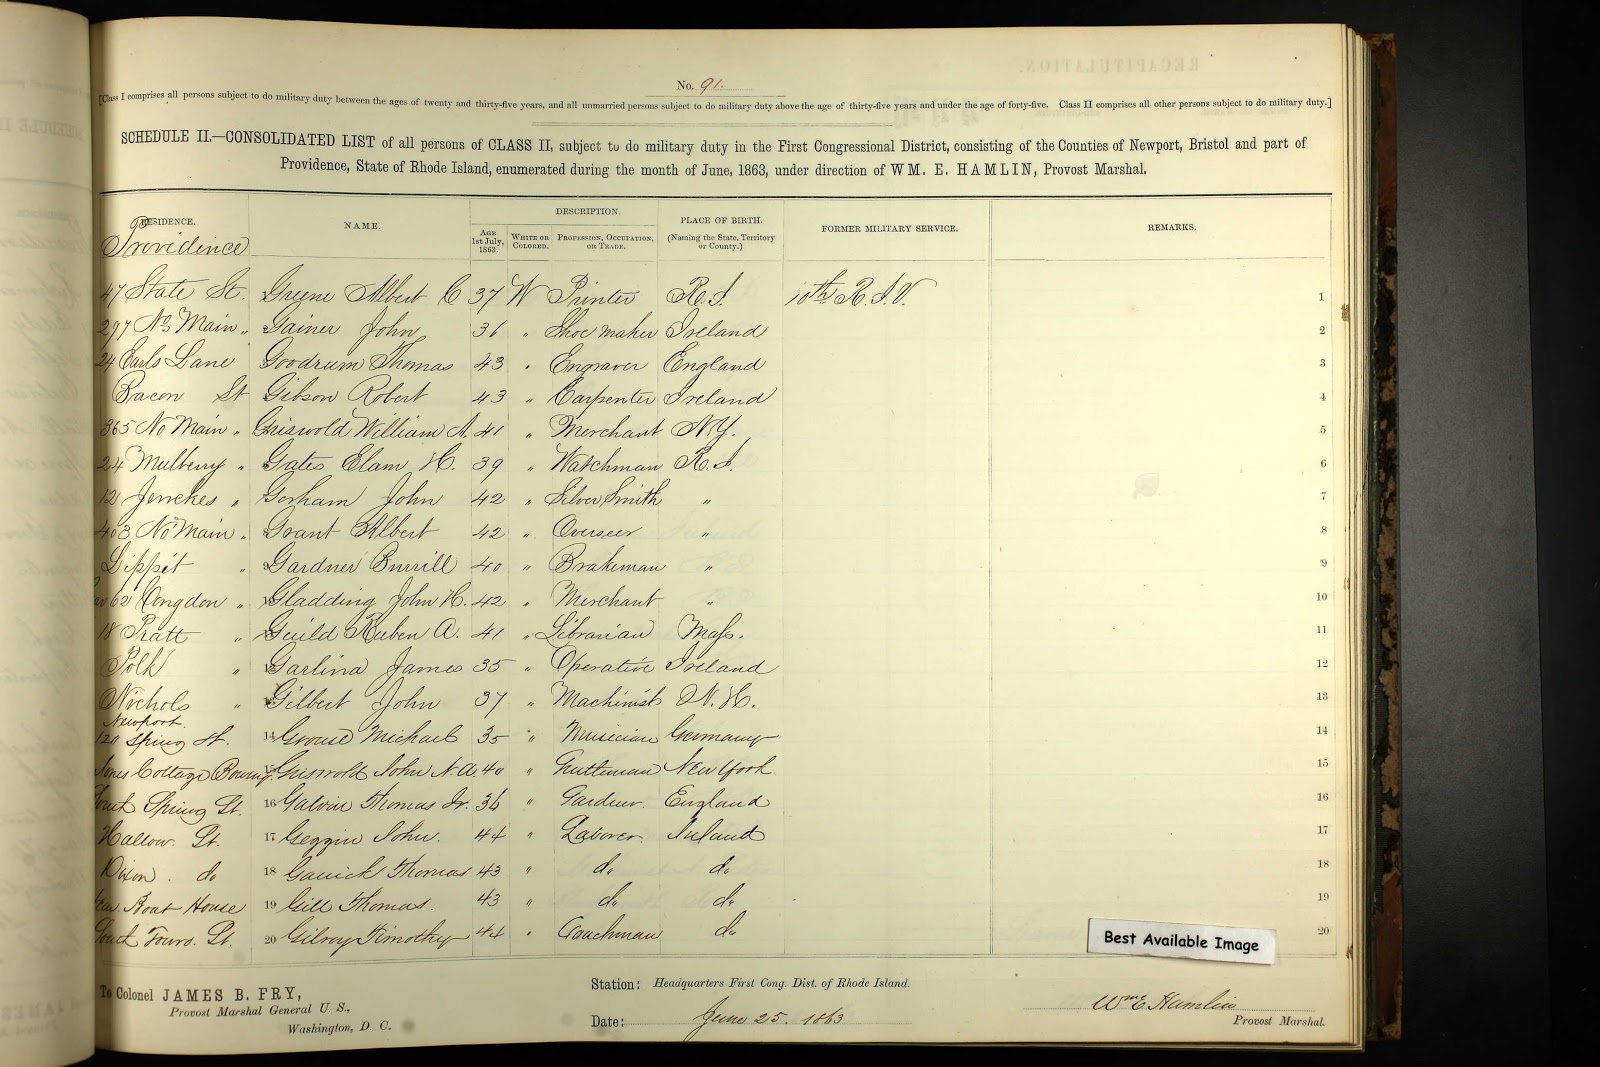 No. 91.
[Class I comprises all persons subject to do military duty between the ages of twenty and thirty-five years, and all unmarried persons subject to do military duty above the age of thirty-five years and under the age of forty-five. Class II comprises all other persons subject to do military duty.]
SCHEDULE II.—CONSOLIDATED LIST of all persons of CLASS II, subject to do military duty in the First Congressional District, consisting of the Counties of Newport, Bristol and part of
Providence, State of Rhode Island, enumerated during the month of June, 1863, under direction of WM. E. HAMLIN, Provost Marshal.
RESIDENCE. NAME. DESCRIPTION. PLACE OF BIRTH. FORMER MILITARY SERVICE. REMARKS.
AGE 1st July, 1863. WHITE OR COLORED. PROFESSION, OCCUPATION, OR TRADE. (Naming the State, Territory or County.)
Providence
47 State St. Greene Albert C 37 W Printer R.I. 10th R.I.V. 1
297 No Main " Gainer John 36 " Shoe maker Ireland 2
24 Earls Lane Goodrum Thomas 43 " Engraver England 3
Bacon St Gibson Robert 43 " Carpenter Ireland 4
365 No Main " Griswold William A. 41 " Merchant N.Y. 5
24 Mulberry " Gates Elam H. 39 " Watchman R.I. 6
12 Jenckes " Gorham John 42 " Silver Smith " 7
403 No Main " Grant Albert 42 " Overseer " 8
Lippit " Gardner Burrill 40 " Brakeman " 9
62 Congdon " Gladding John H. 42 " Merchant " 10
18 Pratt " Guild Reuben A. 41 " Librarian Mass. 11
Polk " Garlina James 35 " Operative Ireland 12
Nichols " Gilbert John 37 " Machinist N.H. 13
Newport
120 Spring St. 14 Grouse Michael 35 " Musician Germany 14
Cottage 15 Griswold John N.A. 40 " Gentleman New York 15
Spring St. 16 Galvin Thomas Jr. 36 " Gardner. England 16
St. 17 Geggin John. 44 " Laborer Ireland 17
Dixon. do 18 Garrick Thomas 43 " do do 18
Boat House 19 Gill Thomas. 43 " do do 19
St. 20 Gilroy Timothy 44 " Coachman do 20
Best Available Image
To Colonel JAMES B. FRY,
Provost Marshal General U. S.,
Washington, D. C.
Station: Headquarters First Cong. Dist. of Rhode Island.
Date: June 25. 1863
Wm E Hamlin
Provost Marshal.